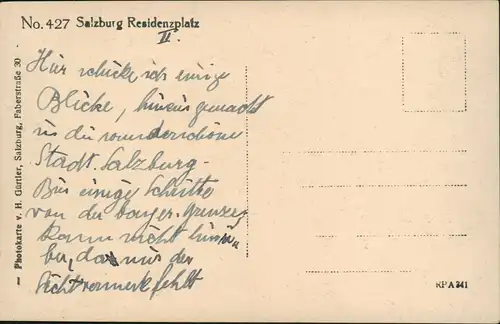 No. 427 Salzburg Residenzplatz
II.
Hier schicke ich einige
Blicke, hinein gemacht
in die wunderschöne
Stadt Salzburg.
Bin einige Schritte
von der bayer. Grenze,
kann nicht hinü
ber, da mir der
Sichtvermerk fehlt
— Photokarte v. H. Gürtler, Salzburg, Faberstraße 30
RPA 341